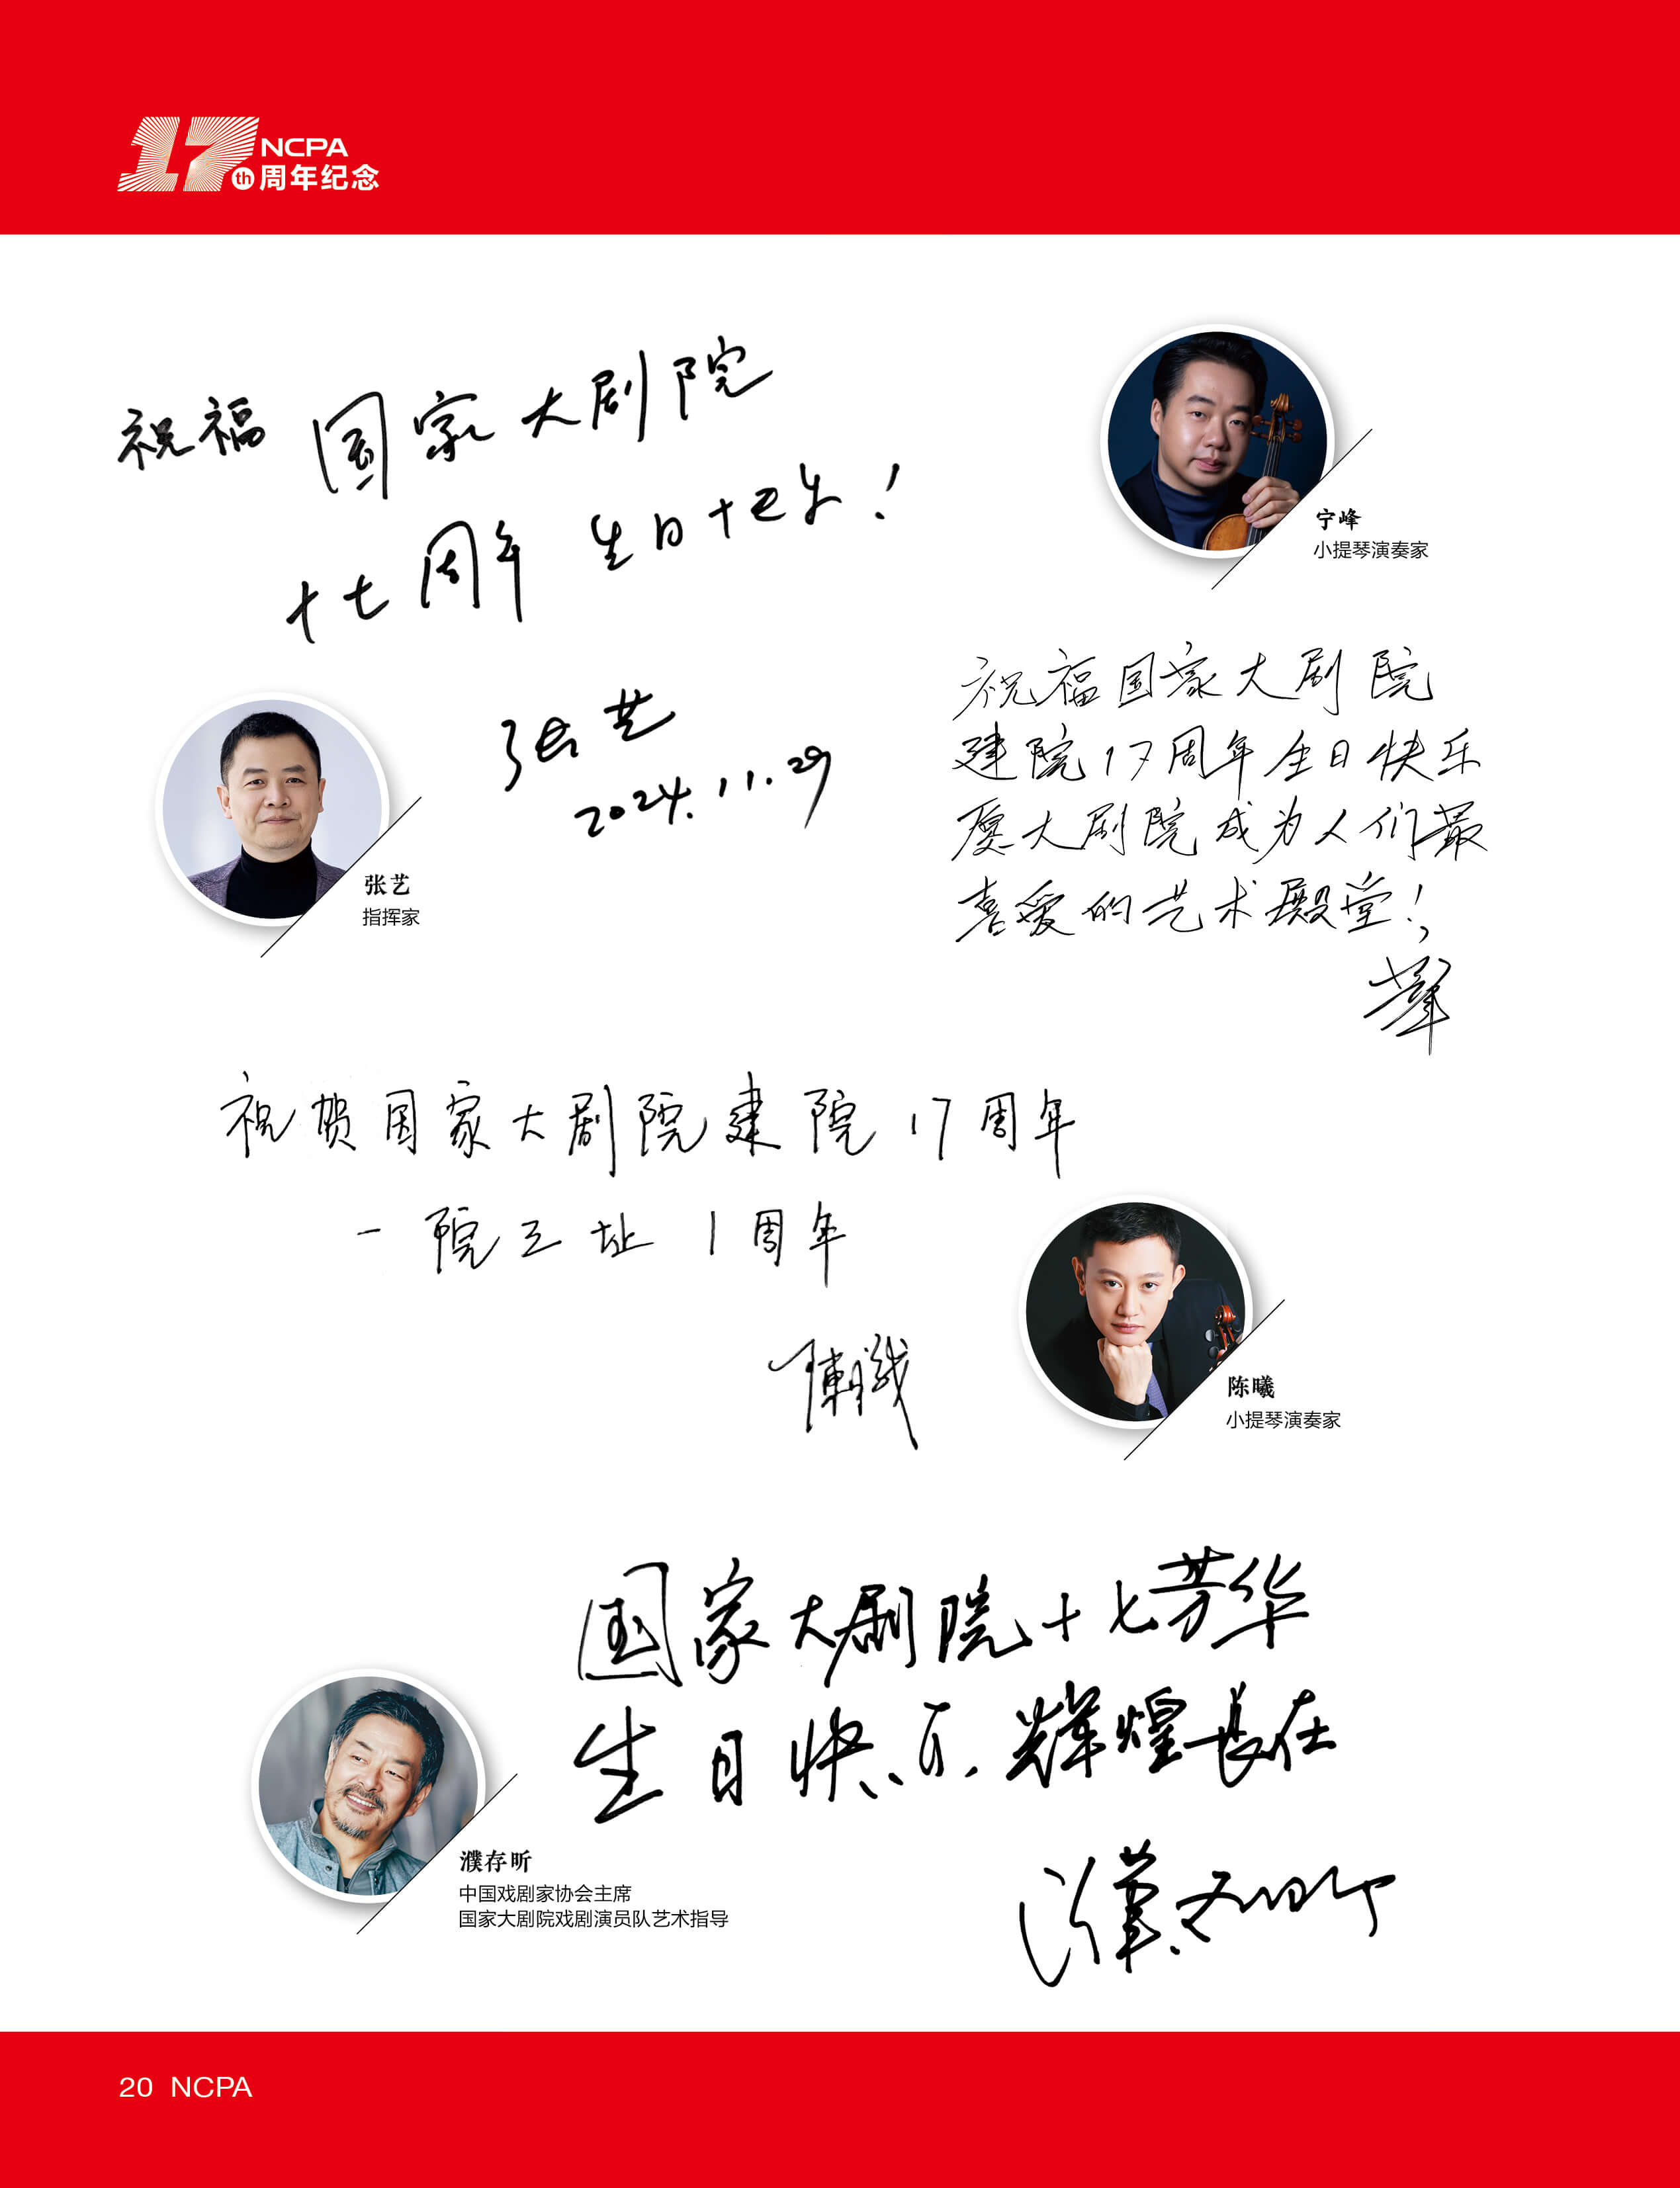 17th NCPA
周年纪念
祝福国家大剧院
十七周年生日快乐!
张艺
2024.11.29
张艺
指挥家
宁峰
小提琴演奏家
祝福国家大剧院
建院17周年生日快乐
愿大剧院成为人们最
喜爱的艺术殿堂!
祝贺国家大剧院建院17周年
一院三址1周年
陈曦
陈曦
小提琴演奏家
国家大剧院十七芳华
生日快乐.辉煌長在
濮存昕
濮存昕
中国戏剧家协会主席
国家大剧院戏剧演员队艺术指导
20 NCPA